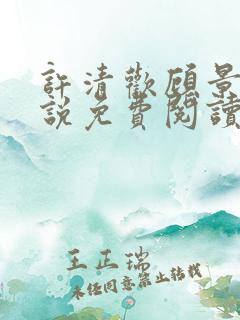 許清歡顧景
說免費閱讀
王正瑞
未經同意禁止轉載